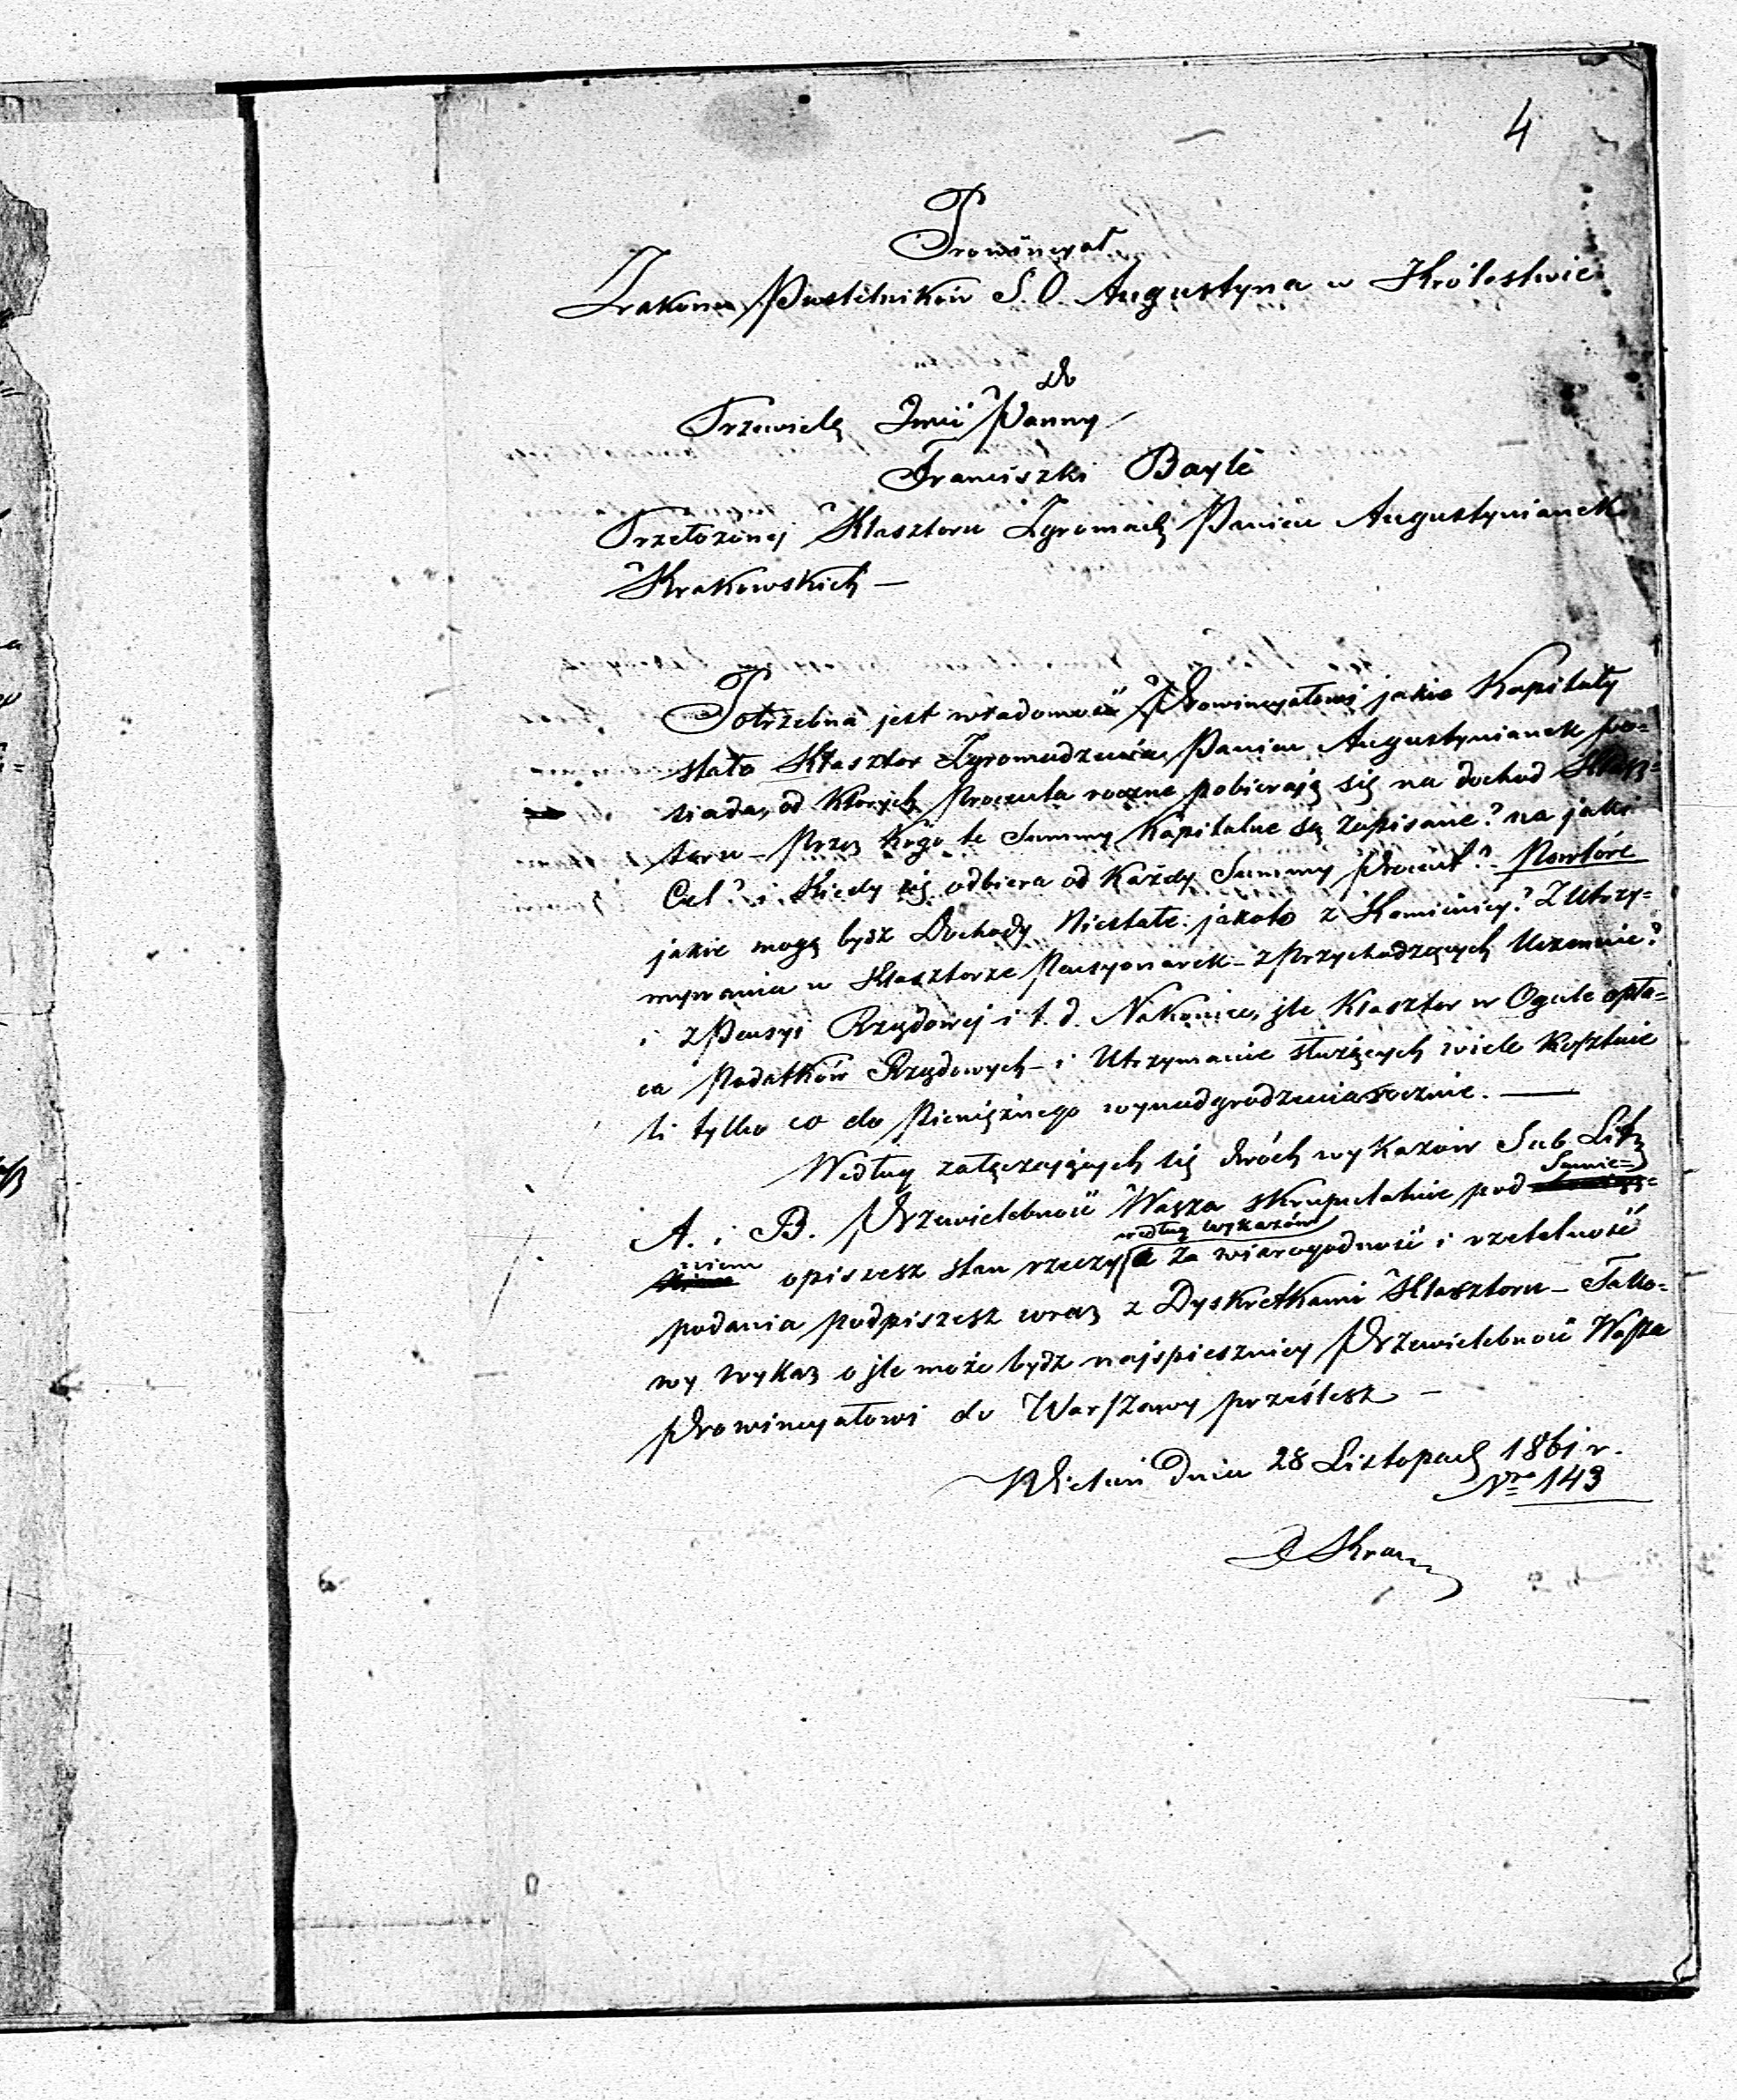 4
Prowincyał
Zakonu Pustelników S. O. Augustyna w Królestwie
do
Przewielę Jmci Panny
Franciszki Bayle
Przełożonej Klasztoru Zgromadz Panien Augustynianek
Krakowskich —
Potrzebna jest wiadomość Prowincyałowi jakie Kapitały
stałe Klasztor Zgromadzenia Panien Augustynianek po=
siada, od których Procenta roczne pobierają się na dochod Klasz=
toru – Przez kogo te Summy Kapitalne są zapisane? na jaki
Cel? i Kiedy się odbiera od każdy Summy Procent? – Powtóre
jakie mogą bydź Dochody Niestałe: jakoto z Kamienicy? Z Utrzy=
mywania w Klasztorze Pensyonarek – z Przychodzących Uczennic?
i z Pensyi Rządowej i t. d. Nakoniec, jle Klasztor w Ogule opła=
ca Podatków Rządowych – i Utrzymanie służących wiele Kosztuie
li tylko co do Pieniężnego wynadgrodzenia rocznie. —
Według załączających się dwóch wykazów Sub Litt
A. i B. Przewielebność Wasza skrupulatnie pod Sumie=
niem opiszesz stan rzeczy według wykazów a za wiarogodność i rzetelność
podania podpiszesz wraz z Dyskretkami Klasztoru – Tako=
wy wykaz o jle może bydz najspieszniey Przewielebność Wasza
Prowincyałowi do Warszawy prześlesz –
Wieluń Dnia 28 Listopad 1861 r.
Nro 143